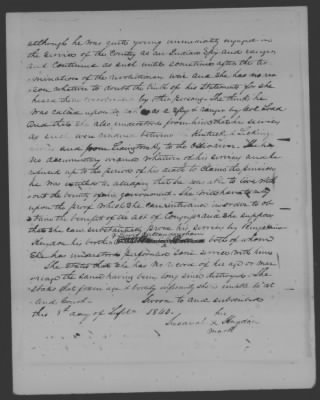 although he was quite young immediately engaged in
the service of the Country as an Indian Spy and ranger
and Continued as such until sometime after the ter
mination of the revolutionary war and she has no rea
son whatever to doubt the truth of his statements for she
heard them by other persons. She thinks he
was called upon to as a spy & ranger by Col. Todd
And this she also understood from him that his services
as such were rendered between Kentuck & Licking
and from Lexington to the Ohio river. She has
no documentary evidence whatever of his services and he
refused up to the period of his death to claim the pension
he was entitled to alledging that he was able to live with
out the bounty of his government. She will have to rely
upon the proof which she can introduce in order to ob
tain the benefit of the act of Congress and she supposes
that she can substantially prove his services by Benjamin
his brother both of whom
she has understood performed some service with him
She states that she has no record of her age or mar
riage the same having been long since destroyed. She
states that from age & bodily infirmity she is unable to at
tend Court. Sworn to and subscribed
this 1st day of Septr 1840. her
Susanah x
mark